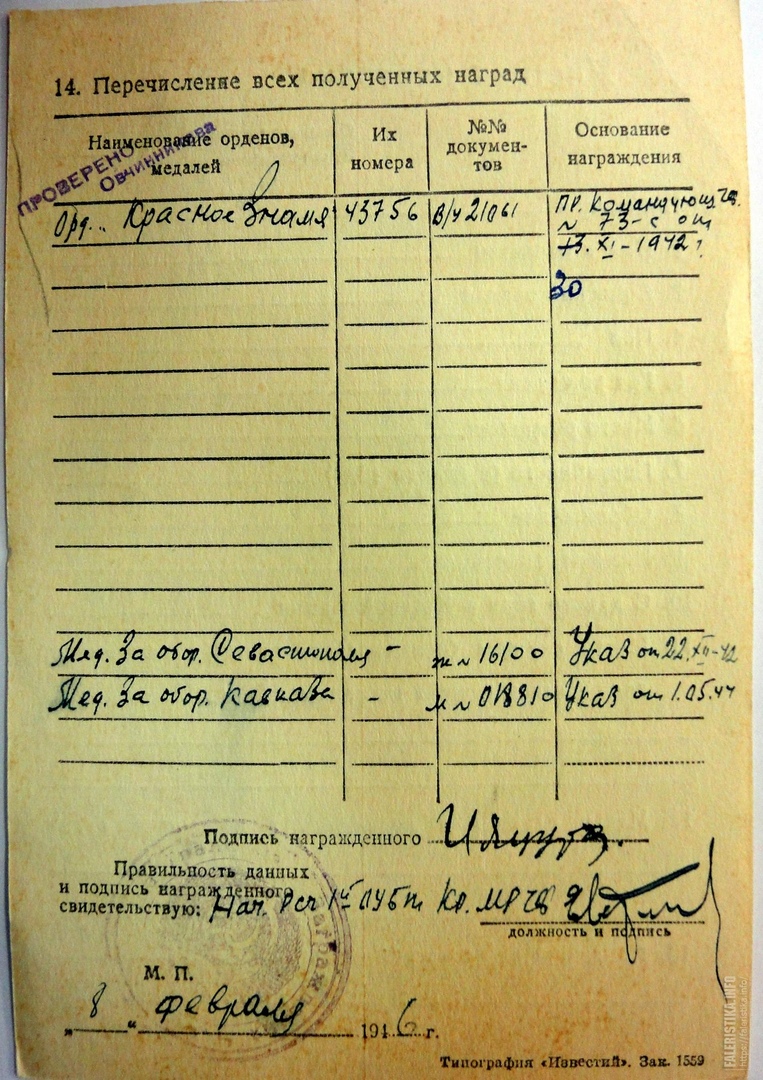 14. Перечисление всех полученных наград
Наименование орденов, медалей
Их номера
№№ докумен-тов
Основание награждения
ПРОВЕРЕНО
Овчинникова
Орд. Красное Знамя 43756 В/ч 21061 Пр. Командующ. ЧФ.
N 73-с от
13.XI-1942 г.
30
Мед. За обор. Севастополя - N 16100 Указ от 22.XII-42
Мед. За обор. Кавказа - м N 018810 Указ от 1.05.44
Подпись награжденного
Правильность данных
и подпись награжденного
свидетельствую: Нач.
должность и подпись
М. П.
„ 8 “ февраля 1946 г.
Типография «Известий». Зак. 1559
FALERISTIKA.INFO